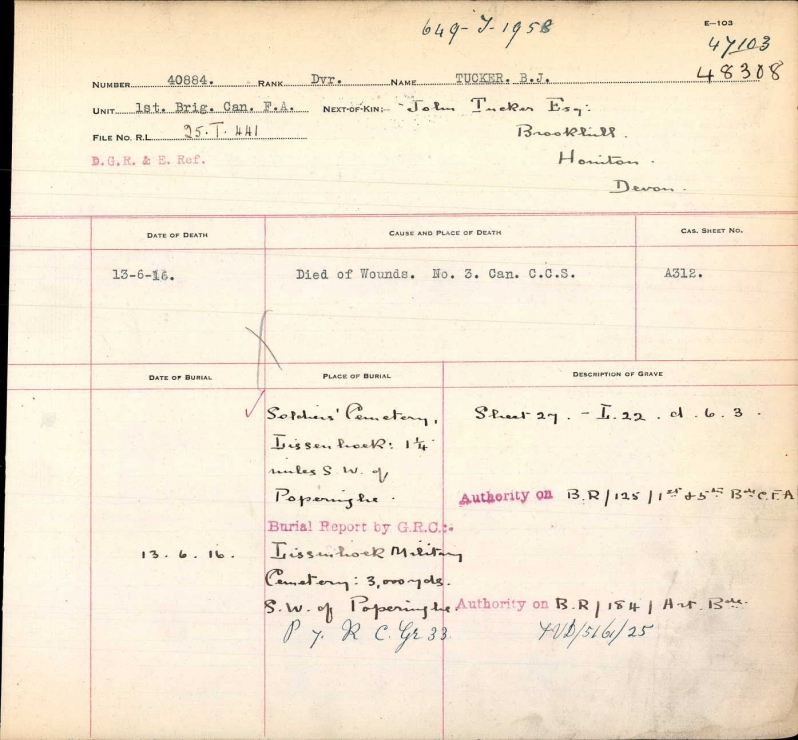 649-T-1958
E—103
47103
48308
NUMBER 40884. RANK Dvr. NAME TUCKER. B.J.
UNIT 1st. Brig. Can. F.A. NEXT-OF-KIN:- John Tucker Esq:
FILE NO. R.L. 25.T.441 Brookhill.
D.G.R. & E. Ref. Honiton.
Devon.
DATE OF DEATH CAUSE AND PLACE OF DEATH CAS. SHEET NO.
13-6-16. Died of Wounds. No. 3. Can. C.C.S. A312.
DATE OF BURIAL PLACE OF BURIAL DESCRIPTION OF GRAVE
Soldiers' Cemetery, Sheet 27. - L.22.d.6.3.
Lissenhoek: 1¼
miles S.W. of
Poperinghe. Authority on B.R/125/1st & 5th Bde C.F.A
Burial Report by G.R.C.:-
13.6.16. Lissenhoek Military
Cemetery: 3,000 yds.
S.W. of Poperinghe. Authority on B.R/184/Art. Bde.
R C. Gr 33